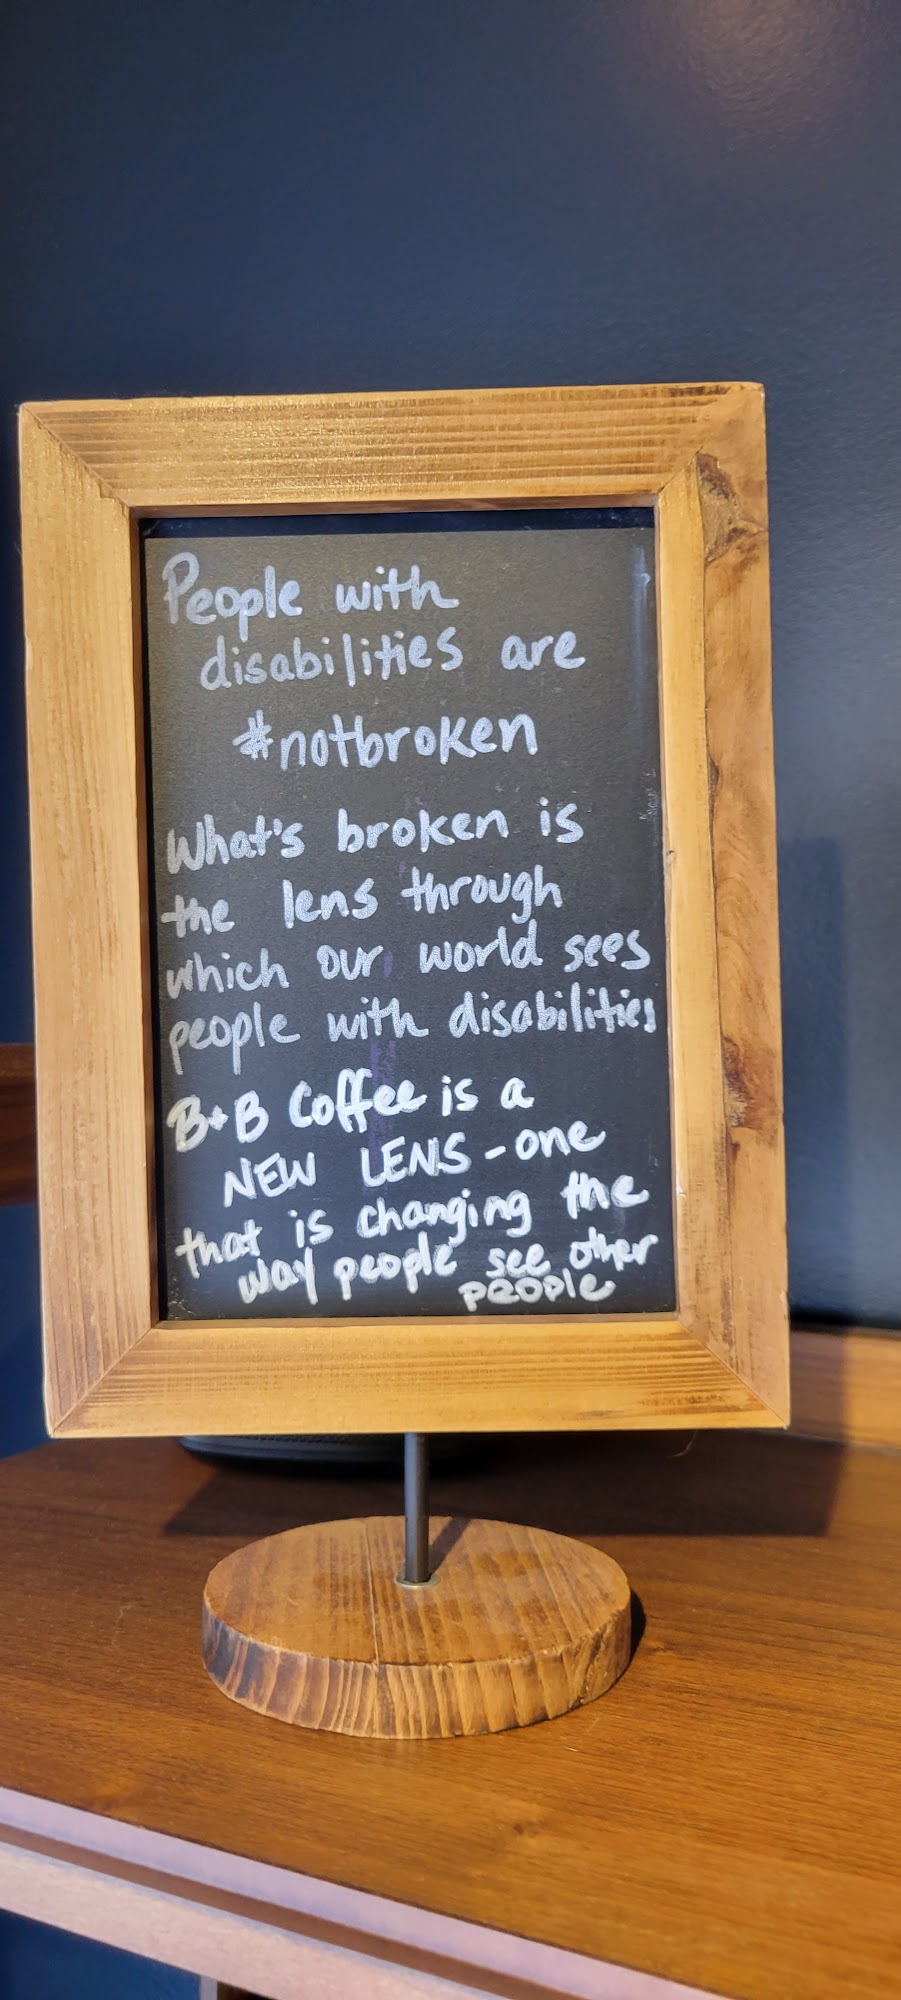 People with
disabilities are
#notbroken
What's broken is
the lens through
which our world sees
people with disabilities
B+B Coffee is a
NEW LENS - one
that is changing the
way people see other
people